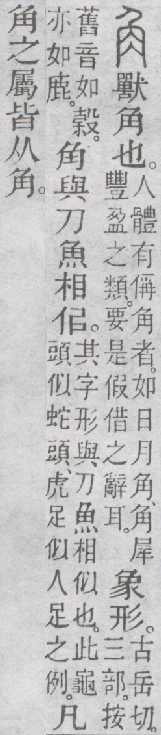 角獸角也。人體有偁角者。如日月角、角犀豐盈之類。要是假借之辭耳。象形。古岳切。三部。按
舊音如榖。亦如鹿。角與刀魚相佀。其字形與刀𩵋相似也。此龜頭似蛇頭、虎足似人足之例。凡
角之屬皆从角。